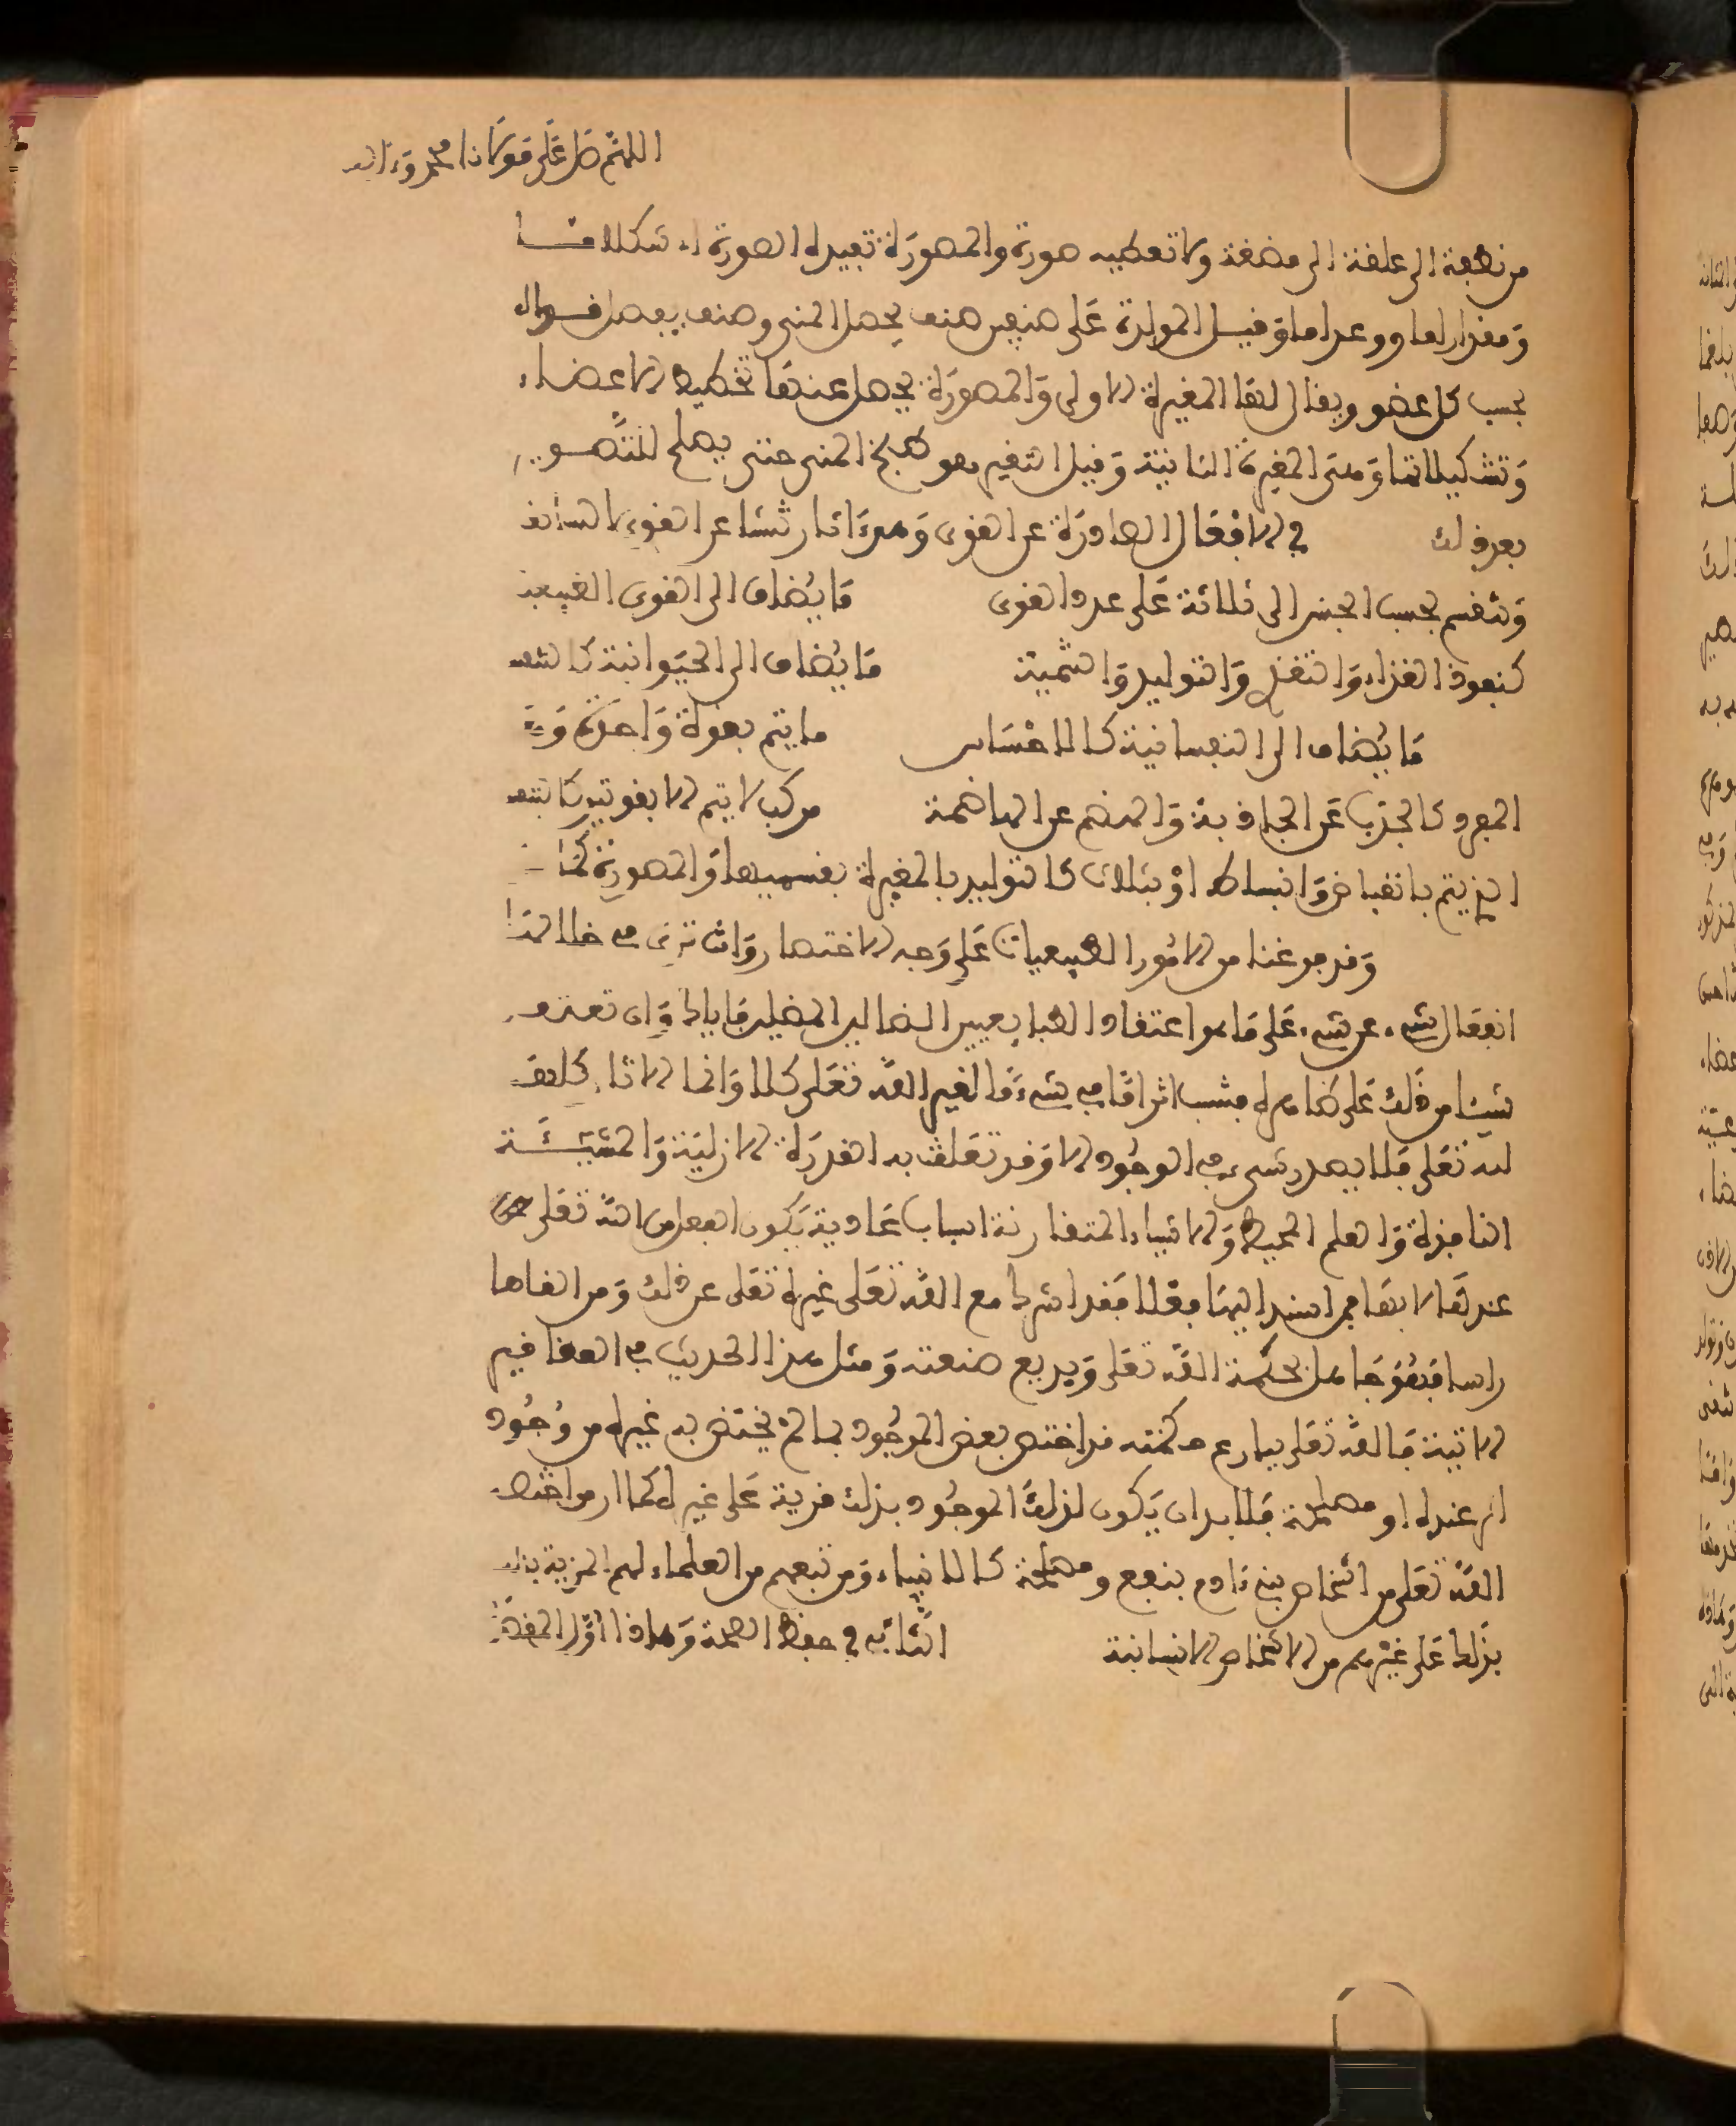 اللهم صل على مولانا محمد وءاله
من نطفة الى علقة الى مضغة ولا تعطيه صورة والمصورة تفيده الصورة اي شكلا ما
ومقدارا ما وعددا ما وقيل المولدة على صنفين صنف يحصل المني وصنف يفصل قواه
بحسب كل عضو ويقال لها المغيرة الاولى والمصورة يحصل عندها تخطيط الاعضاء
وتشكيلاتها وهي المغيرة الثانية وقيل التغير هو طبخ المني حتى يصلح للتصوير
بعد ذلك في الافعال الصادرة عن القوى وهي ءاثار تنشا عن القوى السابقة
وتنقسم بحسب الجنس الى ثلاثة على عدد القوى ما يضاف الى القوى الطبيعية
كنفوذ الغذاء والتغذي والتوليد والتنمية ما يضاف الى الحيوانية كالتنفس
ما يضاف الى النفسانية كالاحساس ما يتم بقوة واحدة وهو
المفرد كالجذب عن الجاذبة والهضم عن الهاضمة مركب لا يتم الا بقوتين كالتنفس
الذي يتم بانقباض وانبساط او بثلاث كالتوليد بالمغيرة بقسميها والمصورة
وقد فرغنا من الامور الطبيعيات على وجه الاختصار وانت ترى في خلالها
انفعال شيء عن شيء على ما هو اعتقاد الطبايعيين الضالين المضلين فاياك وان تعتقد
شيئا من ذلك على ظاهره فتنسب اثرا ما في شيء ما لغير الله تعلى كلا وانما الاثار كلها
لله تعلى فلا يصدر شيء في الوجود الا وقد تعلقت به القدرة الازلية والمشيئة
النافذة والعلم المحيط والاشياء المتقارنة اسباب عادية يكون الفعل من الله تعلى
عندها لا بها فمن اسند اليها فعلا فقد اشرك مع الله تعلى غيره تعلى عن ذلك ومن الغاها
راسا فهو جاهل بحكمة الله تعلى وبديع صنعته ومثل هذا الحديث في العقاقير
الاتية فالله تعلى ببارع حكمته قد اختص بعض الموجود بما لم يختص به غيره من وجود
اثر عنده او مصلحة فلا بد ان يكون لذلك الموجود بذلك مزية على غيره كما ان من اختصه
الله تعلى من اشخاص بني ءادم بنفع ومصلحة كالانبياء ومن تبعهم من العلماء لهم المزية
بذلك على غيرهم من الاشخاص الانسانية الثاني في حفظ الصحة وهاذا اول